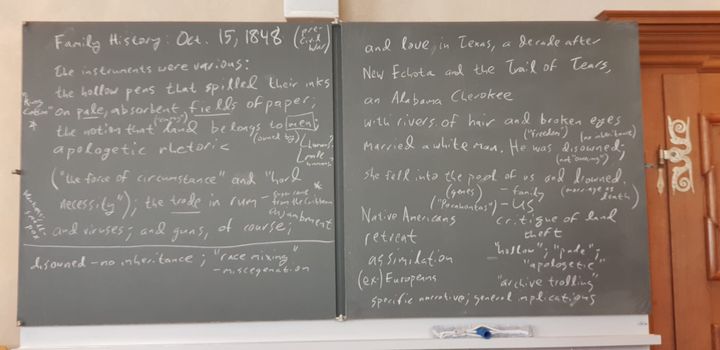 Family History: Oct. 15, 1848 (pre-
Civil
War)
The instruments were various:
the hollow pens that spilled their inks
"King
Cotton"
*
on pale, absorbent fields of paper;
the notion that land belongs to men;
(owned by)
apologetic rhetoric
("the force of circumstance" and "hard
necessity"); the trade in rum
from the Caribbean
and viruses; and guns, of course;
disowned - no inheritance; "race mixing"
- miscegenation
and love, in Texas, a decade after
New Echota and the Trail of Tears,
an Alabama Cherokee
with rivers of hair and broken eyes
("freedom") (no inheritance)
married a white man. He was disowned;
(not "owning")
she fell into the pool of us and drowned.
(genes) - family (marriage as
death)
("Pocahontas") - US
Native Americans
retreat
assimilation
(ex) Europeans
critique of land
theft
- "hollow"; "pale";
"apologetic"
"archive trolling"
specific narrative; general implications